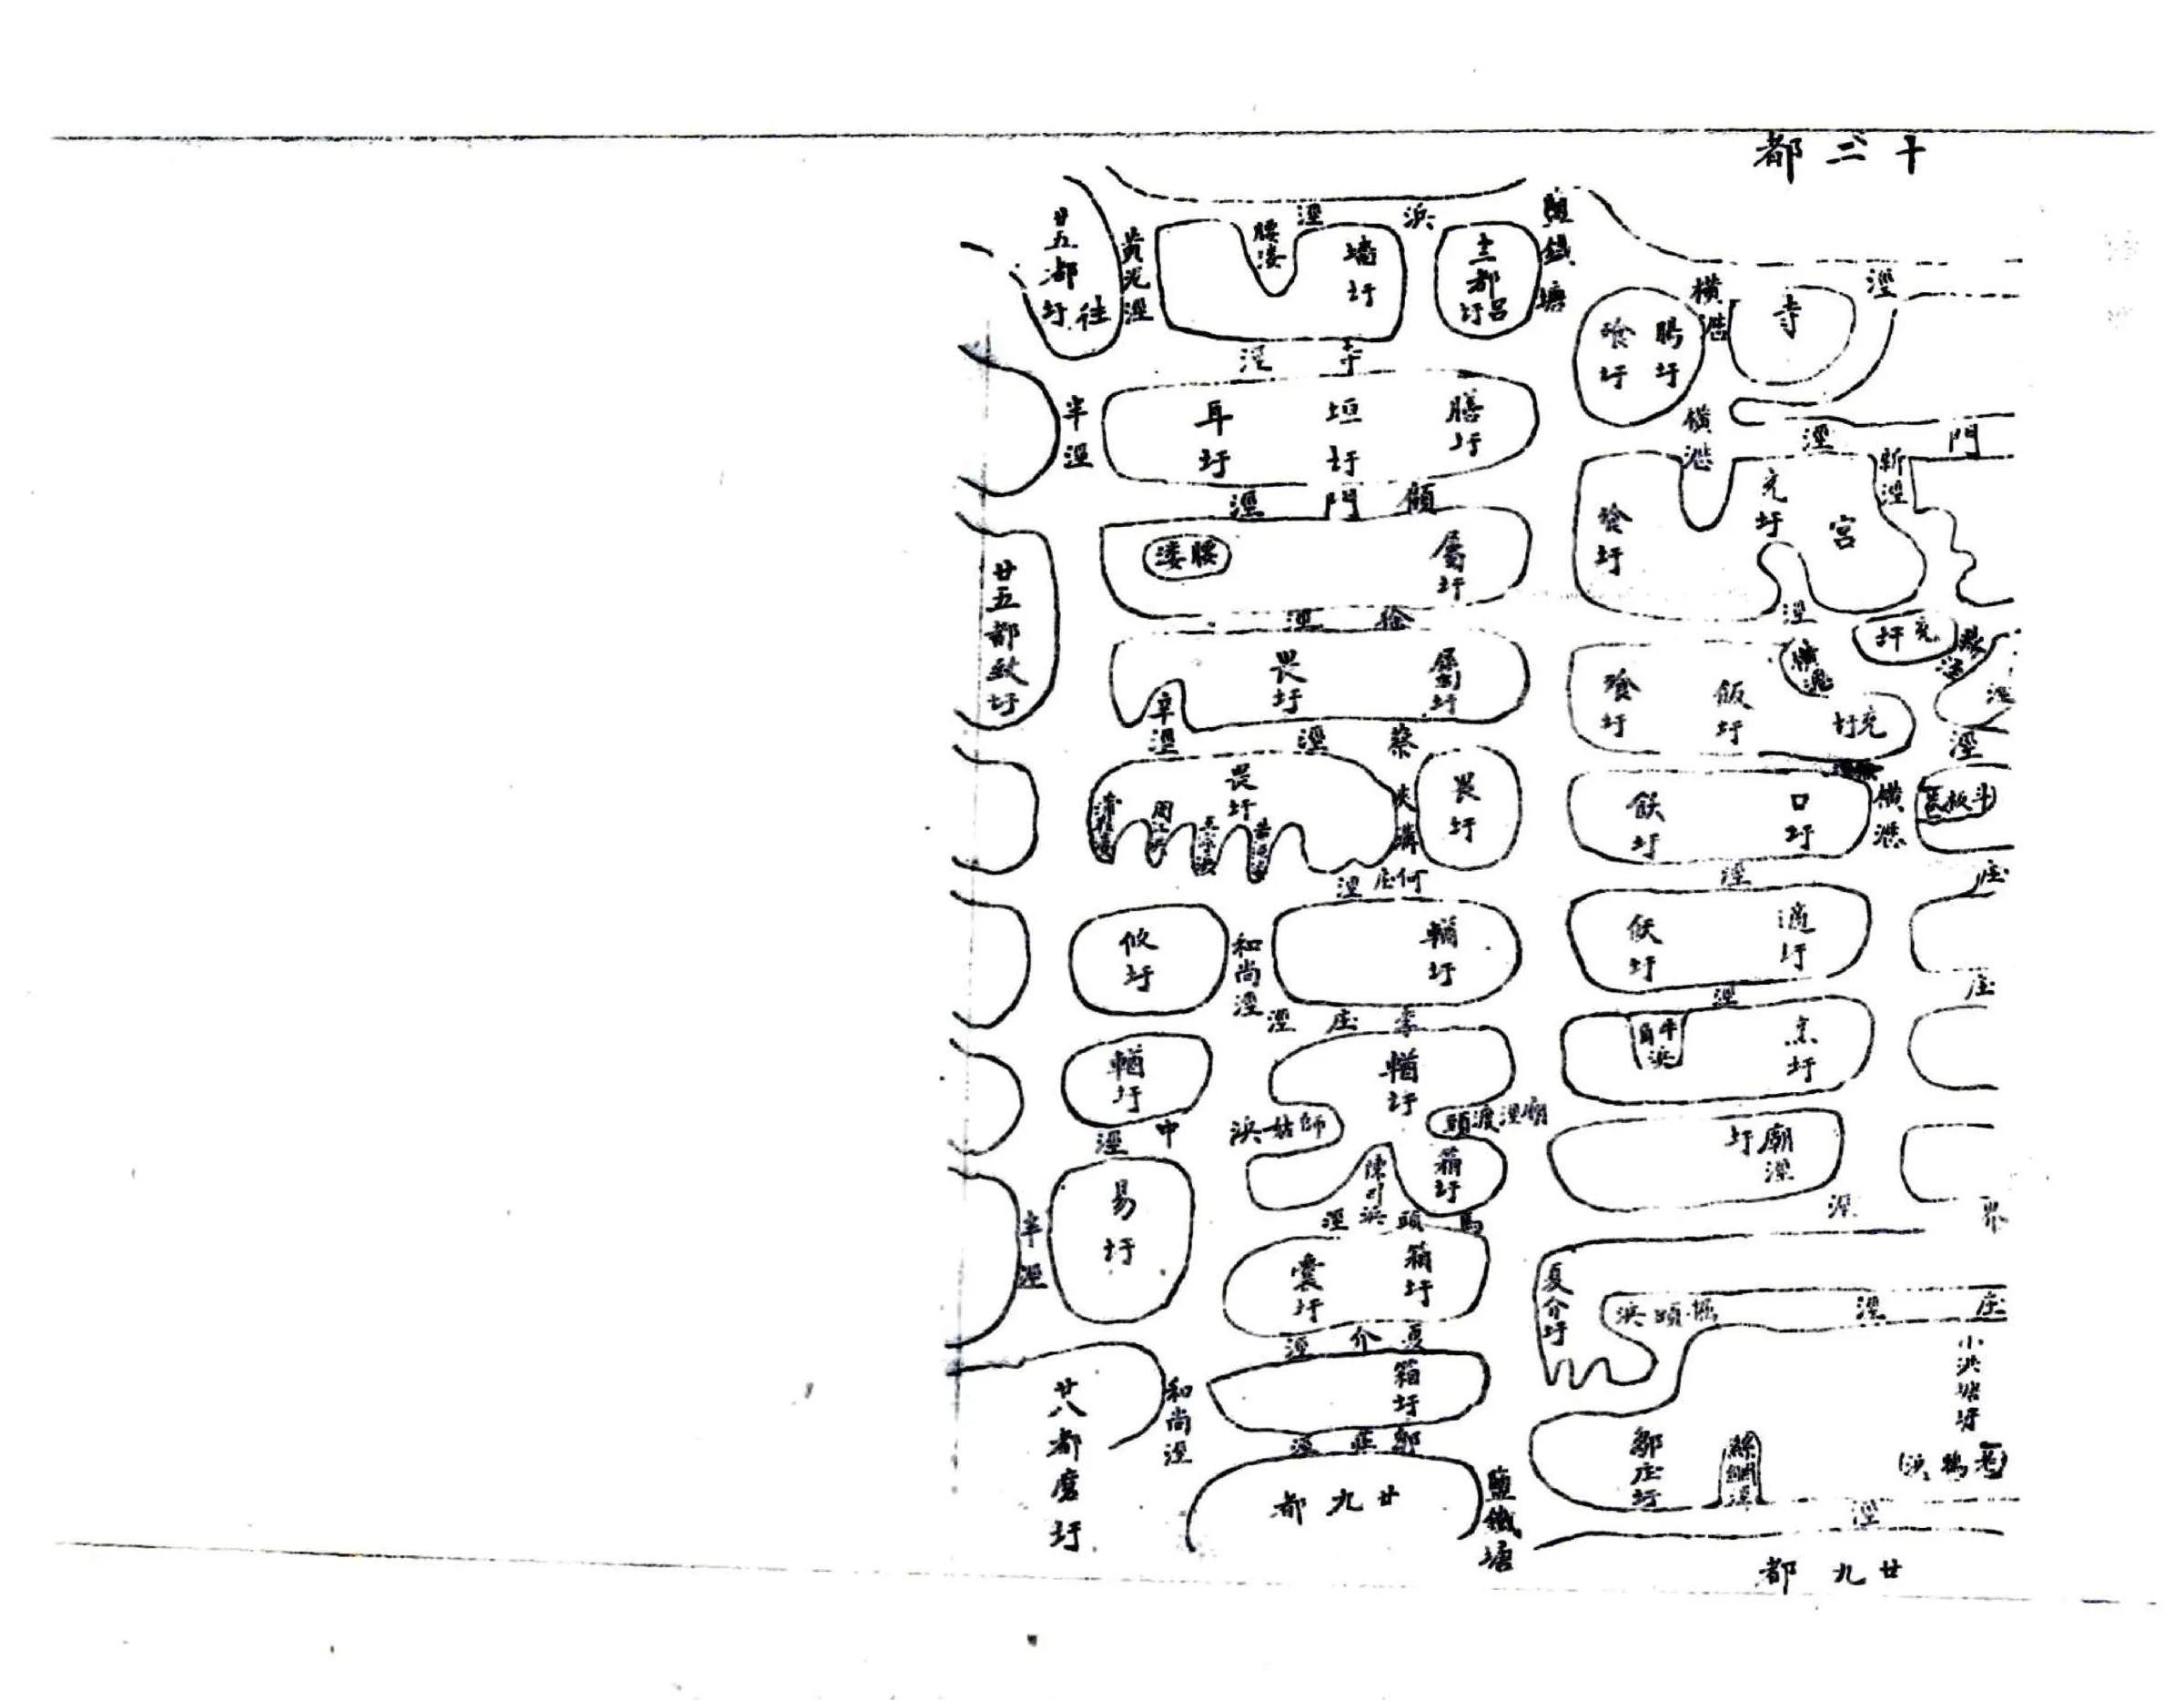 十三都
鹽鐵塘
浜涇
十三都呂圩
墻圩
腰漊
黃泥涇
廿五都往圩
涇
橫瀝
寺
腸圩
飡圩
寺涇
膳圩
垣圩
耳圩
半涇
門涇
新涇
橫瀝
充圩
宮
飡圩
顧門涇
屬圩
腰漊
廿五都致圩
徐涇
涇
充圩
橫瀝
充圩
飯圩
飡圩
屬圩
畏圩
辛涇
蔡涇
涇
畏圩
畏圩
夾溝
橫瀝
口圩
飫圩
何庄涇
庄
涇
適圩
飫圩
輶圩
和尚涇
攸圩
李庄涇
庄
涇
烹圩
牛肩浜
輶圩
輶圩
廟涇渡頭
師姑浜
中涇
廟涇圩
箱圩
陳司浜
馬頭涇
易圩
半涇
界
涇
箱圩
囊圩
夏介圩
庄
涇
堀頭浜
夏介涇
箱圩
小洪塘圩
鄒庄圩
絲網涇
和尚涇
鄒庄涇
廿九都
鹽鐵塘
廿八都磨圩
涇
廿九都